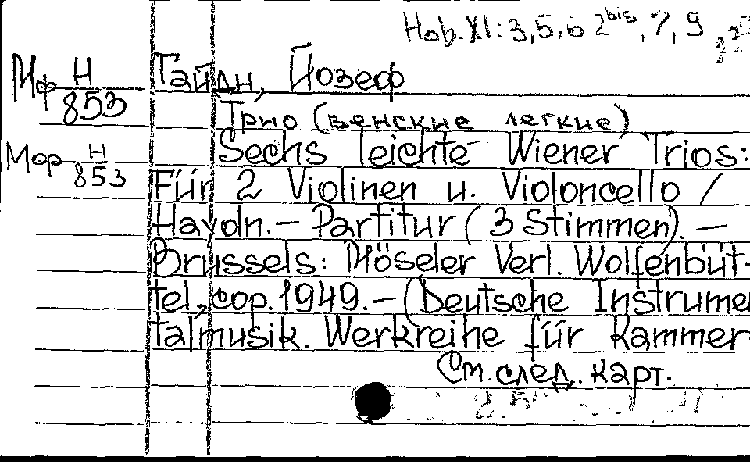 Hob. XI: 3, 5, 6 2bis, 7, 9
Мф Н/853
Гайдн, Йозеф
Трио (венские легкие)
Мор Н/853
Sechs leichte Wiener Trios:
Für 2 Violinen u. Violoncello /
Haydn. – Partitur (3 Stimmen). –
Brussels: Möseler Verl. Wolfenbüt-
tel, cop. 1949. – (Deutsche Instrumen
talmusik. Werkreihe für Kammer-
См. след. карт.